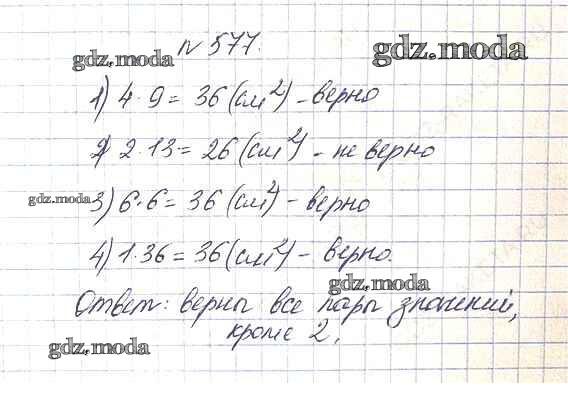 № 577.
gdz.moda
gdz.moda
1) 4·9 = 36 (см²) – верно
2) 2·13 = 26 (см²) – не верно
gdz.moda
3) 6·6 = 36 (см²) – верно
4) 1·36 = 36 (см²) – верно.
gdz.moda
Ответ: верны все пары значений,
кроме 2.
gdz.moda